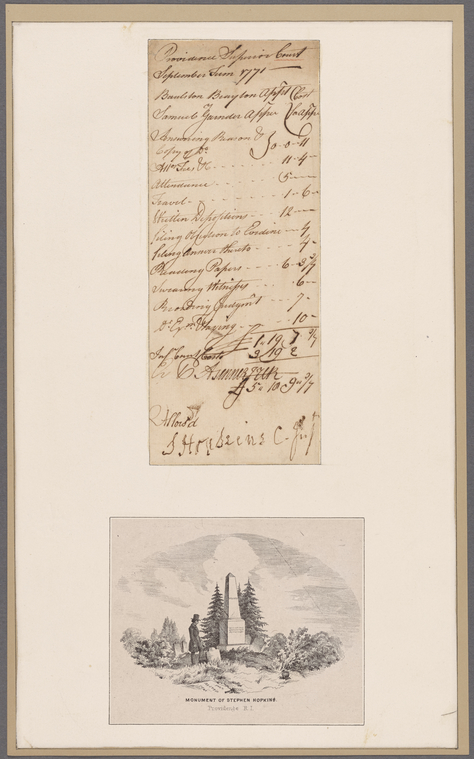 Providence Superior Court
September Term 1771
Boulston Brayton App't Cost
Samuel Gardner Appee
Answering Reason &
Copy of Do 0-0-11
Atto Fees &c 11-4
Attendance 5
Travel 1-6
Written Depositions 12
filing Objection to Evidence 4
filing Answer thereto 4
Reading Papers 6
Swearing Witnesses 6
Recording Judgm't 7
10
£ 1 19 7
Inf. Court Costs 2
£ 5 10 9
Allow'd
S Hopkins C. Jus
MONUMENT OF STEPHEN HOPKINS.
Providence R.I.